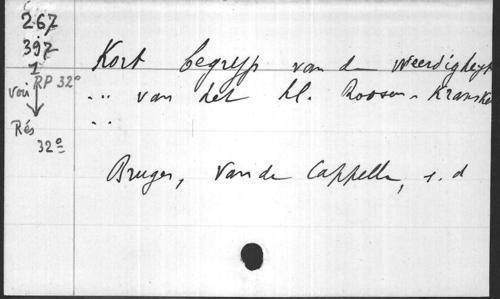 267
397
1
RP 32°
voir
Rés
32°
Kort begryp van de weerdigheyt
.. van het hl. Roosen-Kranske
..
Bruges, Van de Cappelle, s. d